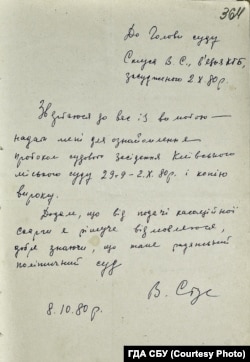 364
До Голови суду
Стуса В. С., в'язня КГБ,
засудженого 2.X.80р.
Звертаюся до Вас із вимогою —
надати мені для ознайомлення
протокол судового засідання Київського
міського суду 29.9 – 2.X.80р. і копію
вироку.
Додам, що від подачі касаційної
скарги я рішуче відмовляюся,
добре знаючи, що таке радянський
політичний суд
В. Стус
8.10.80р.
ГДА СБУ (Courtesy Photo)